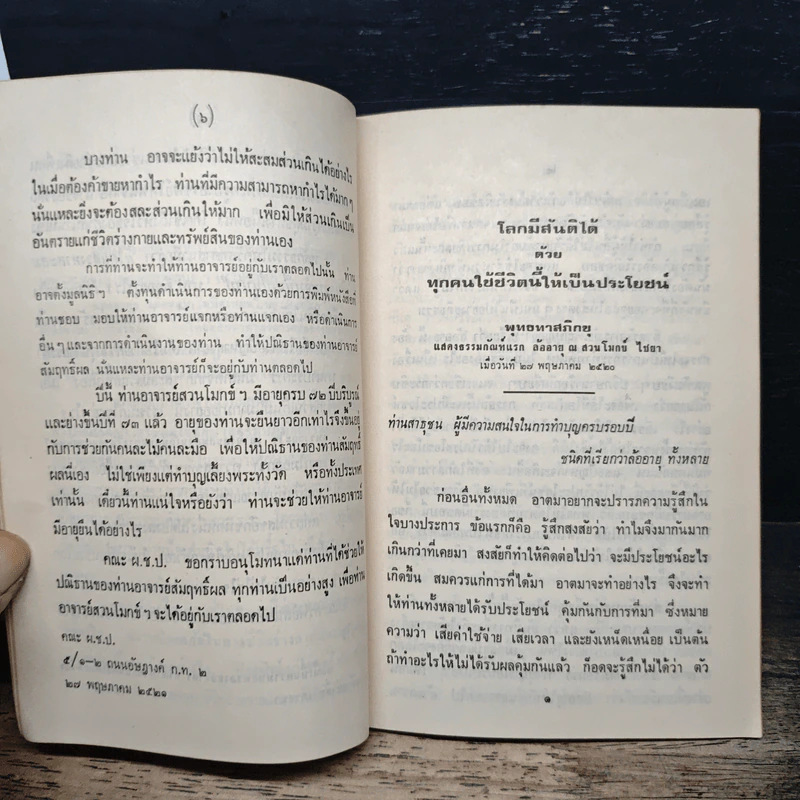 (๖)
บางท่าน อาจจะแย้งว่าไม่ให้สะสมส่วนเกินได้อย่างไร
ในเมื่อต้องค้าขายหากำไร ท่านที่มีความสามารถหากำไรได้มากๆ
นั่นแหละยิ่งจะต้องสละส่วนเกินให้มาก เพื่อมิให้ส่วนเกินเป็น
อันตรายแก่ชีวิตร่างกายและทรัพย์สินของท่านเอง
การที่ท่านจะทำให้ท่านอาจารย์อยู่กับเราตลอดไปนั้น ท่าน
อาจตั้งมูลนิธิฯ ตั้งทุนดำเนินการของท่านเองด้วยการพิมพ์หนังสือที่
ท่านชอบ มอบให้ท่านอาจารย์แจกหรือท่านแจกเอง หรือดำเนินการ
อื่นๆและจากการดำเนินงานของท่าน ทำให้ปณิธานของท่านอาจารย์
สัมฤทธิ์ผล นั่นแหละท่านอาจารย์ก็จะอยู่กับท่านตลอดไป
ปีนี้ ท่านอาจารย์สวนโมกข์ฯ มีอายุครบ ๗๒ ปีบริบูรณ์
และย่างขึ้นปีที่ ๗๓ แล้ว อายุของท่านจะยืนยาวอีกเท่าไรจึงขึ้นอยู่
กับการช่วยกันคนละไม้คนละมือ เพื่อให้ปณิธานของท่านสัมฤทธิ์
ผลนี่เอง ไม่ใช่เพียงแต่ทำบุญเลี้ยงพระทั้งวัด หรือทั้งประเทศ
เท่านั้น เดี๋ยวนี้ท่านแน่ใจหรือยังว่า ท่านจะช่วยให้ท่านอาจารย์
มีอายุยืนได้อย่างไร
คณะ ผ.ช.ป. ขอกราบอนุโมทนาแด่ท่านที่ได้ช่วยให้
ปณิธานของท่านอาจารย์สัมฤทธิ์ผล ทุกท่านเป็นอย่างสูง เพื่อท่าน
อาจารย์สวนโมกข์ฯ จะได้อยู่กับเราตลอดไป
คณะ ผ.ช.ป.
๕/๑–๒ ถนนอัษฎางค์ ก.ท. ๒
๒๗ พฤษภาคม ๒๕๒๑
โลกมีสันติได้
ด้วย
ทุกคนใช้ชีวิตนี้ให้เป็นประโยชน์
พุทธทาสภิกขุ
แสดงธรรมกัณฑ์แรก ล้ออายุ ณ สวนโมกข์ ไชยา
เมื่อวันที่ ๒๗ พฤษภาคม ๒๕๒๐
ท่านสาธุชน ผู้มีความสนใจในการทำบุญครบรอบปี
ชนิดที่เรียกว่าล้ออายุ ทั้งหลาย
ก่อนอื่นทั้งหมด อาตมาอยากจะปรารภความรู้สึกใน
ใจบางประการ ข้อแรกก็คือ รู้สึกสงสัยว่า ทำไมจึงมากันมาก
เกินกว่าที่เคยมา สงสัยก็ทำให้คิดต่อไปว่า จะมีประโยชน์อะไร
เกิดขึ้น สมควรแก่การที่ได้มา อาตมาจะทำอย่างไร จึงจะทำ
ให้ท่านทั้งหลายได้รับประโยชน์ คุ้มกันกับการที่มา ซึ่งหมาย
ความว่า เสียค่าใช้จ่าย เสียเวลา และยังเหน็ดเหนื่อย เป็นต้น
ถ้าทำอะไรให้ไม่ได้รับผลคุ้มกันแล้ว ก็อดจะรู้สึกไม่ได้ว่า ตัว
๑